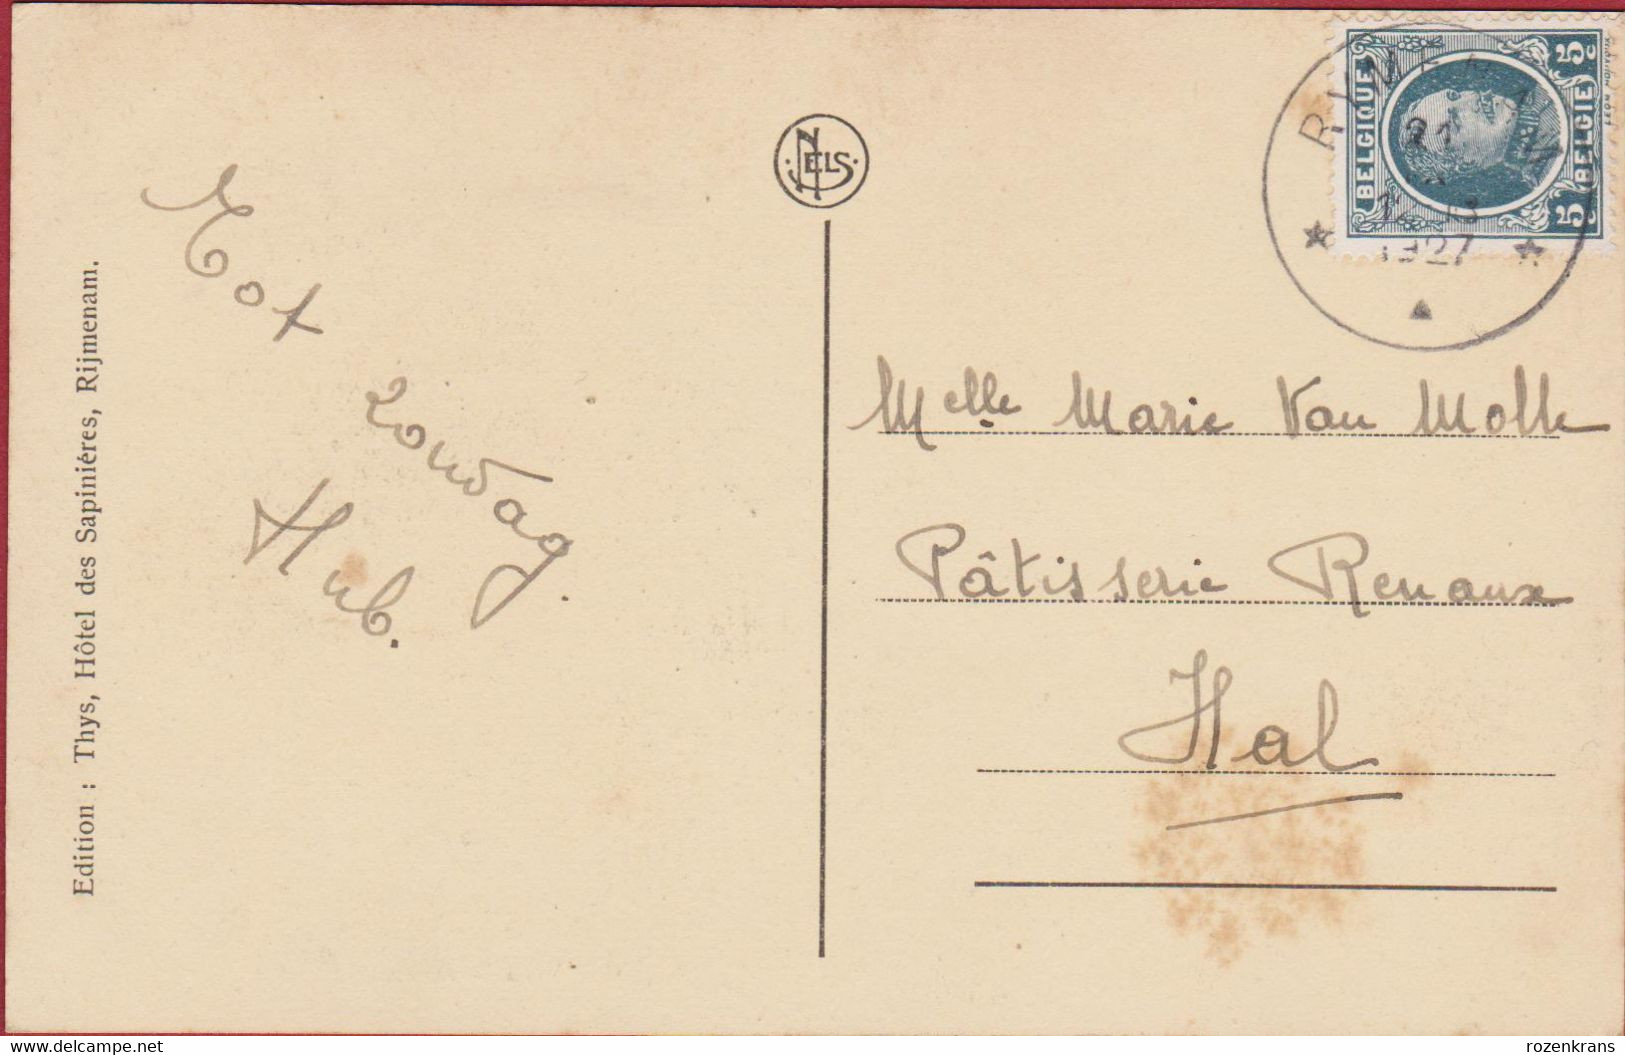 Edition : Thys, Hôtel des Sapiniéres, Rijmenam.
NELS
Tot
zondag.
Hub.
BELGIQUE
BELGIE
5c
5
1927
Melle Marie Van Molle
Pâtisserie Renoux
Hal
delcampe.net
rozenkrans